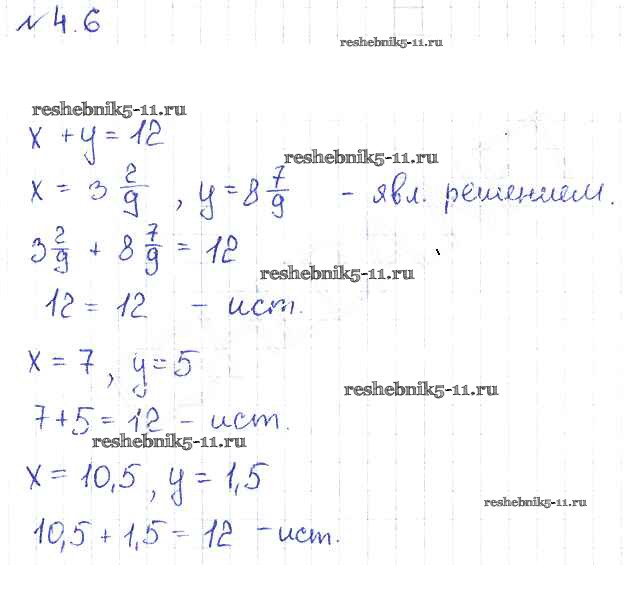 № 4.6
reshebnik5-11.ru
reshebnik5-11.ru
x + y = 12
reshebnik5-11.ru
x = 3 2/9 , y = 8 7/9 - явл. решением.
3 2/9 + 8 7/9 = 12
reshebnik5-11.ru
12 = 12 - ист.
x = 7, y = 5
reshebnik5-11.ru
7 + 5 = 12 - ист.
reshebnik5-11.ru
x = 10,5, y = 1,5
reshebnik5-11.ru
10,5 + 1,5 = 12 - ист.